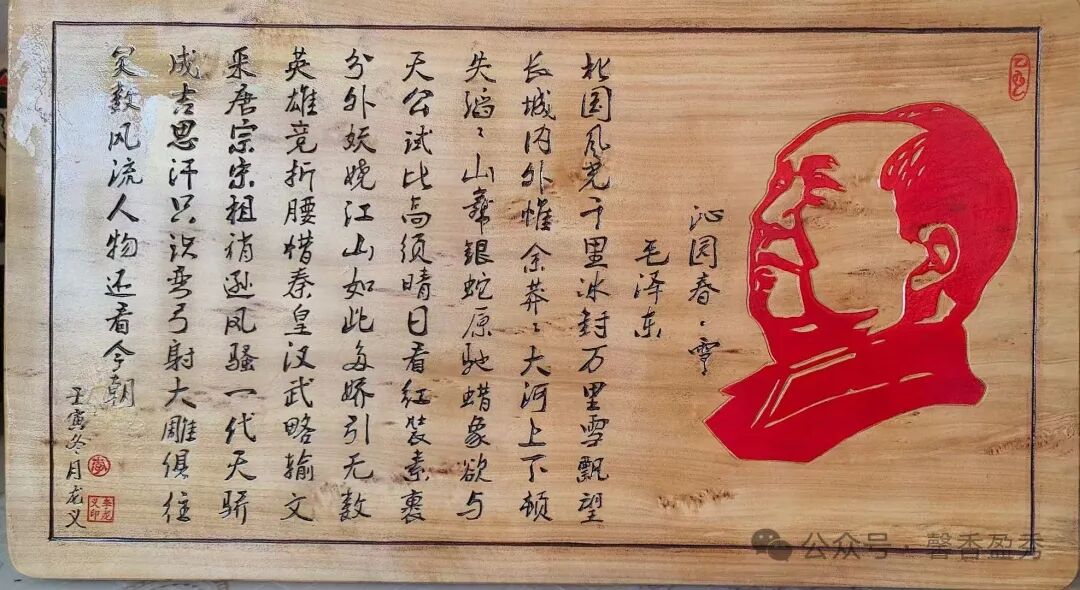 沁园春·雪
毛泽东
北国风光千里冰封万里雪飘望
长城内外惟余莽々大河上下顿
失滔々山舞银蛇原驰蜡象欲与
天公试比高须晴日看红装素裹
分外妖娆江山如此多娇引无数
英雄竞折腰惜秦皇汉武略输文
采唐宗宋祖稍逊风骚一代天骄
成吉思汗只识弯弓射大雕俱往
矣数风流人物还看今朝
壬寅冬月龙义
李龙义印
公众号·馨香盈秀